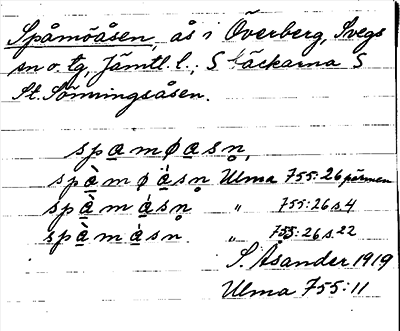 Spåmöåsen, ås i Överberg, Svegs
sn o. tg, Jämtl. l.; S Bäckarna S
St. Sörmningsåsen.
spa̲møa̲sn̥,
spà̲møá̲sn̥ Ulma 755:26 pärmen
spà̲má̲sn̥ " 755:26 s. 4
spà̲má̲sn " 755:26 s. 22
S. Åsander 1919
Ulma 755:11